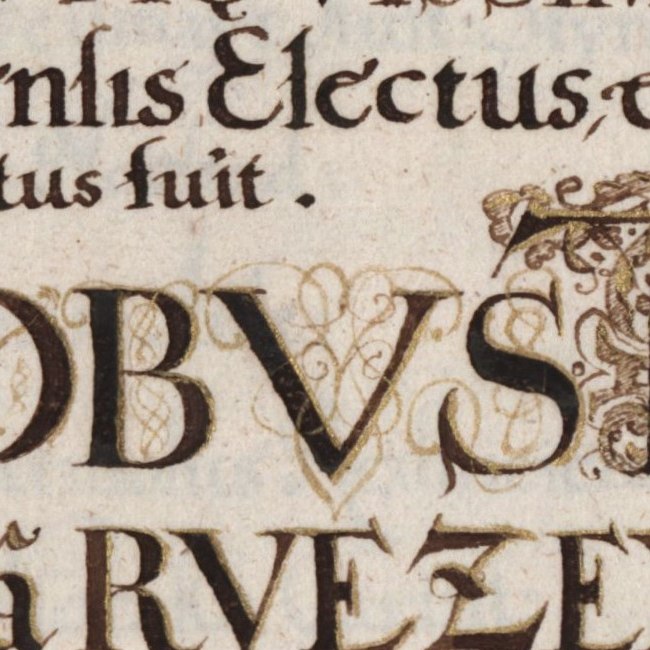 nsis Electus, e
tus fuit .
OBVS T
ã RVEZE